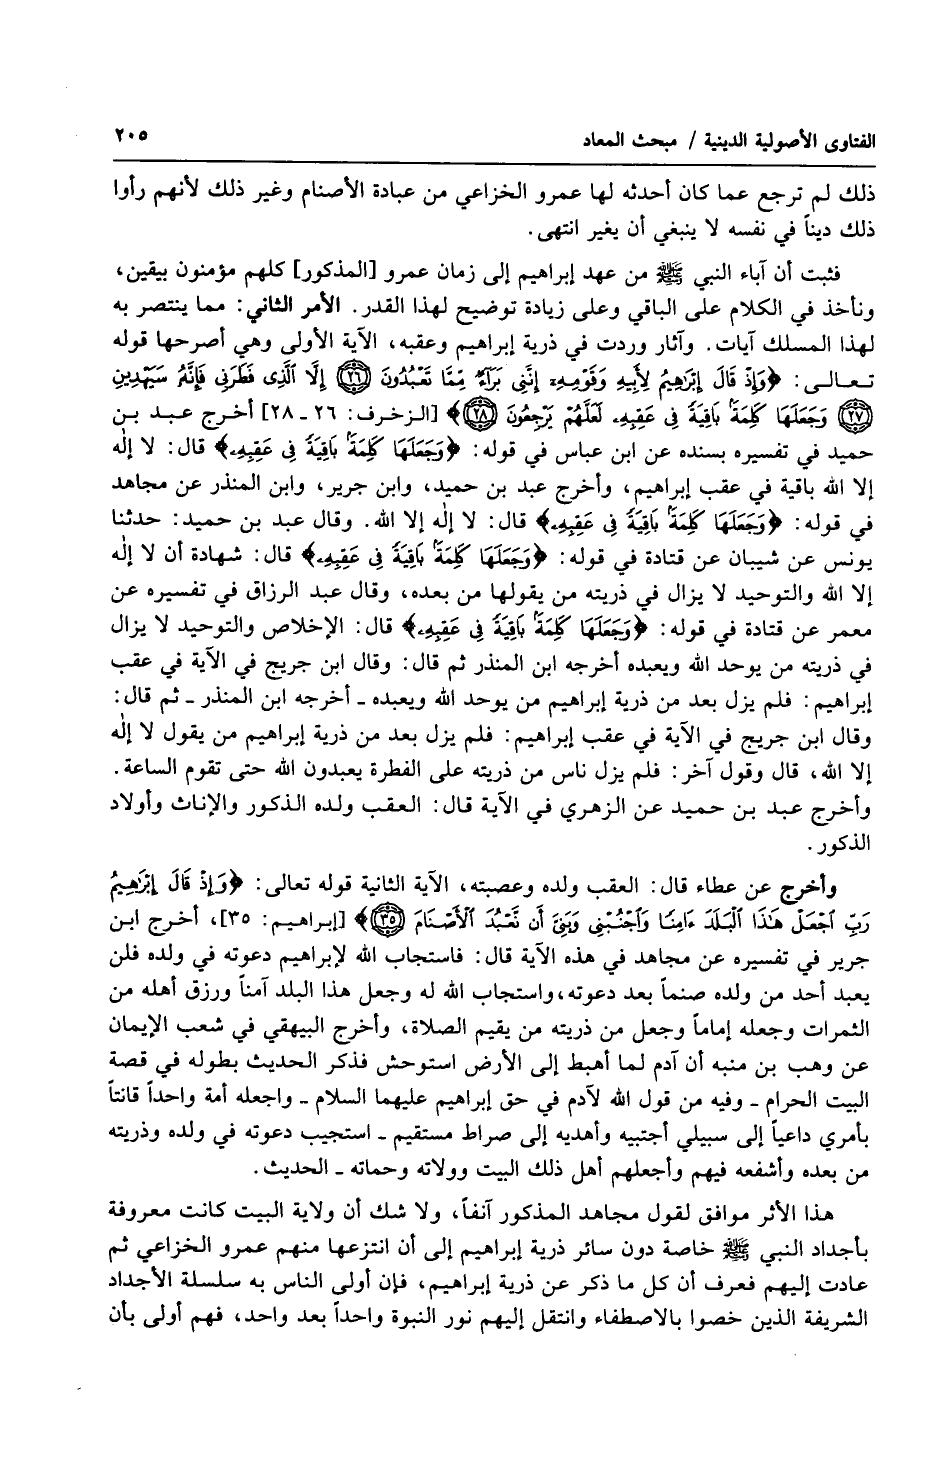 الفتاوى الأصولية الدينية / مبحث المعاد ٢٠٥
ذلك لم ترجع عما كان أحدثه لها عمرو الخزاعي من عبادة الأصنام وغير ذلك لأنهم رأوا
ذلك ديناً في نفسه لا ينبغي أن يغير انتهى.
فثبت أن آباء النبي ﷺ من عهد إبراهيم إلى زمان عمرو [المذكور] كلهم مؤمنون بيقين،
ونأخذ في الكلام على الباقي وعلى زيادة توضيح لهذا القدر. الأمر الثاني: مما ينتصر به
لهذا المسلك آيات. وآثار وردت في ذرية إبراهيم وعقبه، الآية الأولى وهي أصرحها قوله
تعالى: ﴿وَإِذْ قَالَ إِبْرَٰهِيمُ لِأَبِيهِ وَقَوْمِهِۦٓ إِنَّنِى بَرَآءٌ مِّمَّا تَعْبُدُونَ ﴿٢٦﴾ إِلَّا ٱلَّذِى فَطَرَنِى فَإِنَّهُۥ سَيَهْدِينِ
﴿٢٧﴾ وَجَعَلَهَا كَلِمَةًۢ بَاقِيَةً فِى عَقِبِهِۦ لَعَلَّهُمْ يَرْجِعُونَ ﴿٢٨﴾﴾ [الزخرف: ٢٦ ـ ٢٨] أخرج عبد بن
حميد في تفسيره بسنده عن ابن عباس في قوله: ﴿وَجَعَلَهَا كَلِمَةًۢ بَاقِيَةً فِى عَقِبِهِۦ﴾ قال: لا إلٰه
إلا الله باقية في عقب إبراهيم، وأخرج عبد بن حميد، وابن جرير، وابن المنذر عن مجاهد
في قوله: ﴿وَجَعَلَهَا كَلِمَةًۢ بَاقِيَةً فِى عَقِبِهِۦ﴾ قال: لا إلٰه إلا الله. وقال عبد بن حميد: حدثنا
يونس عن شيبان عن قتادة في قوله: ﴿وَجَعَلَهَا كَلِمَةًۢ بَاقِيَةً فِى عَقِبِهِۦ﴾ قال: شهادة أن لا إلٰه
إلا الله والتوحيد لا يزال في ذريته من يقولها من بعده، وقال عبد الرزاق في تفسيره عن
معمر عن قتادة في قوله: ﴿وَجَعَلَهَا كَلِمَةًۢ بَاقِيَةً فِى عَقِبِهِۦ﴾ قال: الإخلاص والتوحيد لا يزال
في ذريته من يوحد الله ويعبده أخرجه ابن المنذر ثم قال: وقال ابن جريج في الآية في عقب
إبراهيم: فلم يزل بعد من ذرية إبراهيم من يوحد الله ويعبده ـ أخرجه ابن المنذر ـ ثم قال:
وقال ابن جريج في الآية في عقب إبراهيم: فلم يزل بعد من ذرية إبراهيم من يقول لا إلٰه
إلا الله، قال وقول آخر: فلم يزل ناس من ذريته على الفطرة يعبدون الله حتى تقوم الساعة.
وأخرج عبد بن حميد عن الزهري في الآية قال: العقب ولده الذكور والإناث وأولاد
الذكور.
وأخرج عن عطاء قال: العقب ولده وعصبته، الآية الثانية قوله تعالى: ﴿وَإِذْ قَالَ إِبْرَٰهِيمُ
رَبِّ ٱجْعَلْ هَٰذَا ٱلْبَلَدَ ءَامِنًا وَٱجْنُبْنِى وَبَنِىَّ أَن نَّعْبُدَ ٱلْأَصْنَامَ ﴿٣٥﴾﴾ [إبراهيم: ٣٥]، أخرج ابن
جرير في تفسيره عن مجاهد في هذه الآية قال: فاستجاب الله لإبراهيم دعوته في ولده فلن
يعبد أحد من ولده صنماً بعد دعوته، واستجاب الله له وجعل هذا البلد آمناً ورزق أهله من
الثمرات وجعله إماماً وجعل من ذريته من يقيم الصلاة، وأخرج البيهقي في شعب الإيمان
عن وهب بن منبه أن آدم لما أهبط إلى الأرض استوحش فذكر الحديث بطوله في قصة
البيت الحرام ـ وفيه من قول الله لآدم في حق إبراهيم عليهما السلام ـ واجعله أمة واحداً قانتاً
بأمري داعياً إلى سبيلي أجتبيه وأهديه إلى صراط مستقيم ـ استجيب دعوته في ولده وذريته
من بعده وأشفعه فيهم وأجعلهم أهل ذلك البيت وولاته وحماته ـ الحديث.
هذا الأثر موافق لقول مجاهد المذكور آنفاً، ولا شك أن ولاية البيت كانت معروفة
بأجداد النبي ﷺ خاصة دون سائر ذرية إبراهيم إلى أن انتزعها منهم عمرو الخزاعي ثم
عادت إليهم فعرف أن كل ما ذكر عن ذرية إبراهيم، فإن أولى الناس به سلسلة الأجداد
الشريفة الذين خصوا بالاصطفاء وانتقل إليهم نور النبوة واحداً بعد واحد، فهم أولى بأن